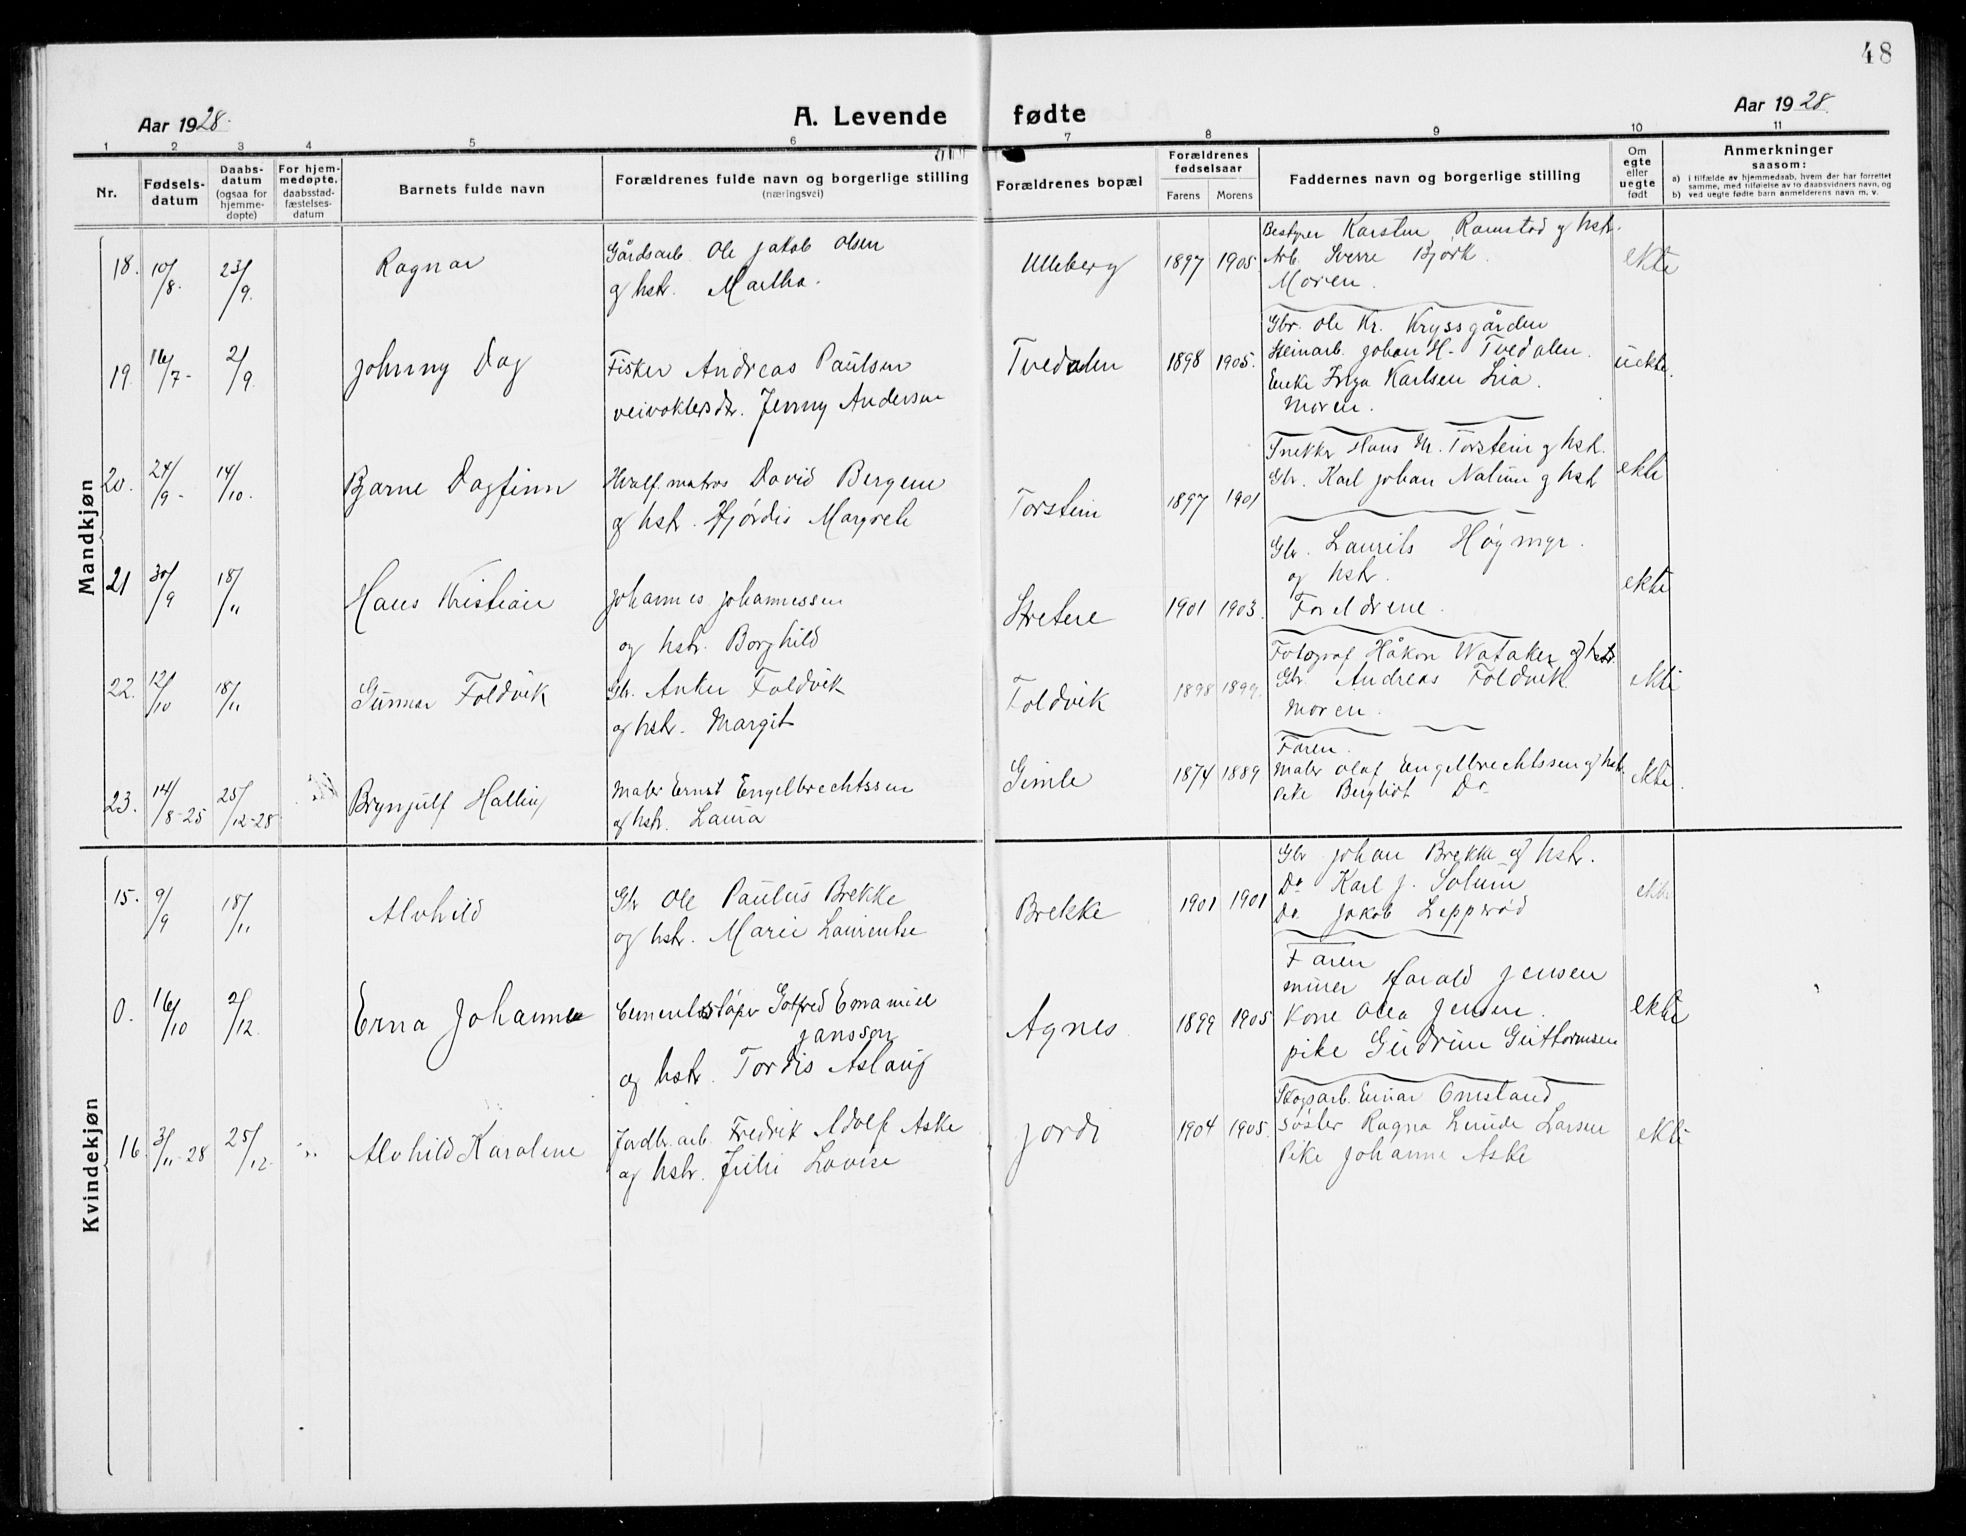 48
Aar 1928.
A. Levende fødte
Aar 1928.
1 2 3 4 5 6 7 8 9 10 11
Nr.
Fødsels-
datum
Daabs-
datum
(ogsaa for
hjemme-
døpte)
For hjem-
medøpte,
daabsstad-
fæstelses-
datum
Barnets fulde navn
Forældrenes fulde navn og borgerlige stilling
(næringsvei)
Forældrenes bopæl
Forældrenes
fødselsaar
Farens Morens
Faddernes navn og borgerlige stilling
Om
egte
eller
uegte
født
Anmerkninger
saasom:
a) i tilfælde av hjemmedaab, hvem der har forrettet
samme, med tilføielse av to daabsvidners navn, og
b) ved uegte fødte barn anmelderens navn m. v.
Mandkjøn
18. 10/8. 23/9. Ragnar
Gårdsarb. Ole Jakob Olsen
og hstr. Martha.
Ulleberg 1897 1905.
Bestyrer Karsten Ramstad og hstr.
Arb. Sverre Bjørk.
Moren.
ekte
19. 16/7- 2/9. Johnny Dag
Fisker Andreas Paulsen
veivoktersdr. Jenny Andersen
Tvedalen 1898 1905.
Gbr. Ole Kr. Kryssgården
Steinarb. Johan H. Tvedalen.
Enke Inga Karlsen Lia.
Moren.
uekte.
20. 24/9- 14/10. Bjarne Dagfinn
Hvalf.matros David Bergem
og hstr. Hjørdis Margrete
Torstein 1897 1901
Snekker Hans M. Torstein og hstr.
Gbr. Karl Johan Nalum og hstr
ekte
21 30/9 18/11 Hans Kristian
Johannes Johannessen
og hstr. Borghild
Stretere 1901 1903.
Gbr. Laurits Høgmyr.
og hstr.
Foreldrene.
ekte
22. 12/10 18/11 Gunnar Foldvik
Gbr. Anker Foldvik
og hstr. Margit
Foldvik 1898 1899.
Fotograf Håkon Wataker og hstr.
Gbr. Andreas Foldvik
Moren.
ekte
23. 14/8-25 25/12-28 Brynjulf Halling
Maler Ernst Engelbrechtssen
og hstr. Laura
Gimle 1874 1889
Faren.
Maler Olaf Engelbrechtssen og hstr.
Pike Bergliot Do
ekte.
Kvindekjøn
15. 9/9 18/11 Alvhild
Gbr Ole Paulus Brekke
og hstr. Marie Laurentse
Brekke 1901 1901
Gbr Johan Brekke og hstr.
Do Karl J. Solum
Do Jakob Lepperød
ekte
0. 16/10 2/12. Erna Johanne
Cementstøper Gotfred Emanuel
Jansson
og hstr. Tordis Aslaug
Agnes 1899 1905
Faren
murer Harald Jensen
Kone Olea Jensen.
pike Gudrun Guttormsen
ekte
16. 3/11-28 25/12. Alvhild Karoline
Jordbr.arb. Fredrik Adolf Aske
og hstr. Julie Lovise
Jordi 1904 1905.
Skogsarb. Einar Omstand
Søster Ragna Lunde Larsen
Pike Johanne Aske
ekte